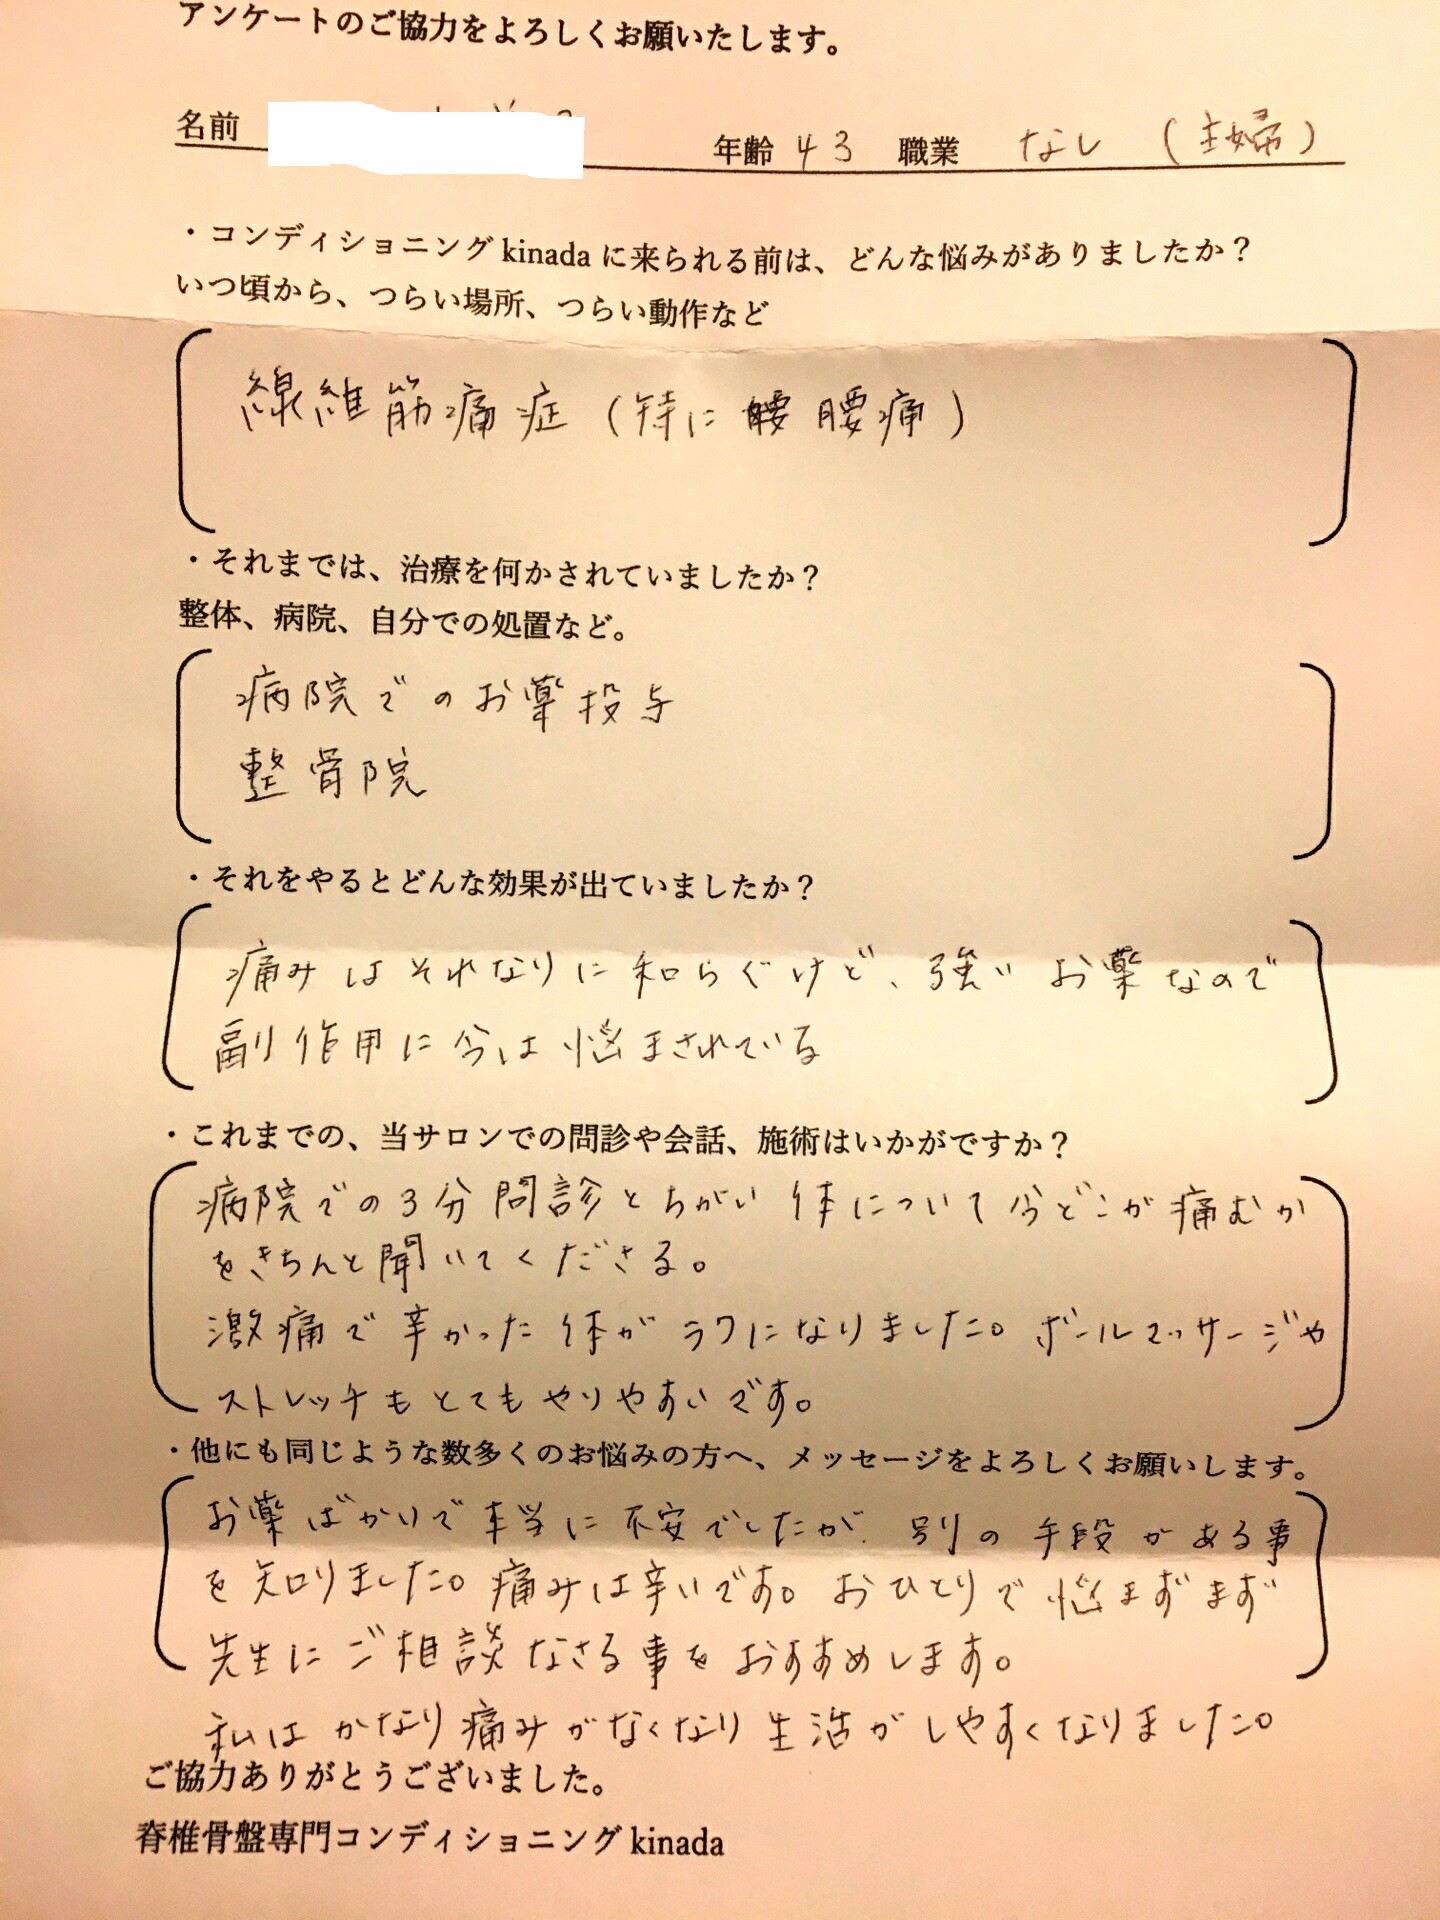 アンケートのご協力をよろしくお願いたします。
名前 年齢 43 職業 なし (主婦)
・コンディショニングkinadaに来られる前は、どんな悩みがありましたか？
いつ頃から、つらい場所、つらい動作など
線維筋痛症(特に腰痛)
・それまでは、治療を何かされていましたか？
整体、病院、自分での処置など。
病院でのお薬投与
整骨院
・それをやるとどんな効果が出ていましたか？
痛みはそれなりに和らぐけど、強いお薬なので
副作用に今は悩まされている
・これまでの、当サロンでの問診や会話、施術はいかがですか？
病院での3分問診とちがい体について今どこが痛むか
をきちんと聞いてくださる。
激痛で辛かった体がラクになりました。ボールマッサージや
ストレッチもとてもやりやすいです。
・他にも同じような数多くのお悩みの方へ、メッセージをよろしくお願いします。
お薬ばかりで本当に不安でしたが、別の手段がある事
を知りました。痛みは辛いです。おひとりで悩まずまず
先生にご相談なさる事をおすすめします。
私はかなり痛みがなくなり生活がしやすくなりました。
ご協力ありがとうございました。
脊椎骨盤専門コンディショニングkinada